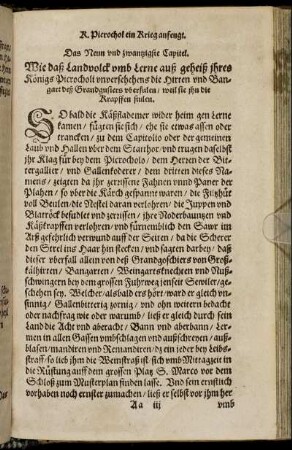 K. Picrochol ein Krieg anfengt.
Das Neun und zwantzigste Capitel.
Wie daß Landvolck vmb Lerne auß geheiß jhres
Königs Picrocholi vnversehehens die Hirten vnd Ban-
gart deß Grandgusiers vberfielen / weil sie jhn die
Krapffen
SO bald die Käßflademer wider heim gen Lerne
kamen / fügten sie sich / ehe sie etwas assen oder
trancken / zu dem Capitolio oder der gemeinen
Laub vnd Hallen vber dem Stattthor / vnd trugen daselbst
jhr Klag für bey dem Picrocholo / dem Herren der Bit-
tergallier / vnd Gallenkoderer / dem dritten dieses Na-
mens / zeigten da jhr zerrissene Fahnen vnnd Paner der
Plahen / so vber die Kärch gespannt waren / die Filtzhüt
voll Beulen / die Nestel daran verlohren / die Juppen vnd
Blatröck besudlet vnd zerrissen / jhre
Käßkrapffen verlohren / vnd fürnemblich den Sawr im
Arß gefehrlich verwund auff der Seiten / da die Scherer
den Strelens Haar hin stecken / vnd sagten darbey / daß
diser vberfall allein von deß Grandgoschiers von Groß-
kälhirten / Bangarten / Weingartsknechten vnd Nuß-
schwingern bey dem grossen Fuhrweg jenseit Seviler / ge-
schehen sey. Welcher / alsbald ers hört / ward er gleich vn-
sinnig / Gallenbitterig zornig / vnd ohn weitern bedacht
oder nachfrag wie oder warumb / ließ er gleich durch sein
Land die Acht vnd aberacht / Bann vnd aberbann / Ler-
men in allen Gassen vmbschlagen vnd außschreyen / auff-
blasen / mandiren vnd Remandiren / dz ein jeder bey Leibs-
straff / so lieb jhm die Weinstraß ist sich vmb Mittagzeit in
die Rüstung auff dem grossen Platz S. Marco vor dem
Schloß zum Musterplan finden lasse. Vnd sein ernstlich
vorhaben noch ernster zumachen / ließ er selbst vor jhm her
Aa iij vmb